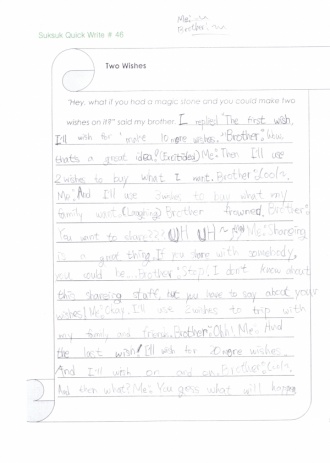 Me: ~
Brother: ~
Suksuk Quick Write # 46
Two Wishes
"Hey, what if you hold a magic stone and you could make two
wishes on it?" said my brother. I replied "The first wish,
I'll wish for 'make 10 more wishes." Brother: What
thats a great idea! (Excited) Me: Then I'll use
2 wishes to buy what I want. Brother: Cool~
Me: And I'll use 3 wishes to buy what my
family want. (Laughing) Brother frowned, Brother:
You want to share??? UH UH~ Me: Sharing
is a great thing. If you share with somebody,
you could be... Brother: Stop! I don't know about
this sharing staff, but you have to say about your
wishes! Me: Okay. I'll use 2 wishes to trip with
my family and friends. Brother: Ohh! Me: And
the last wish! I'll wish for 10 more wishes.
And I'll wish on and on. Brother: Cool~
And then what? Me: You guess what will happen